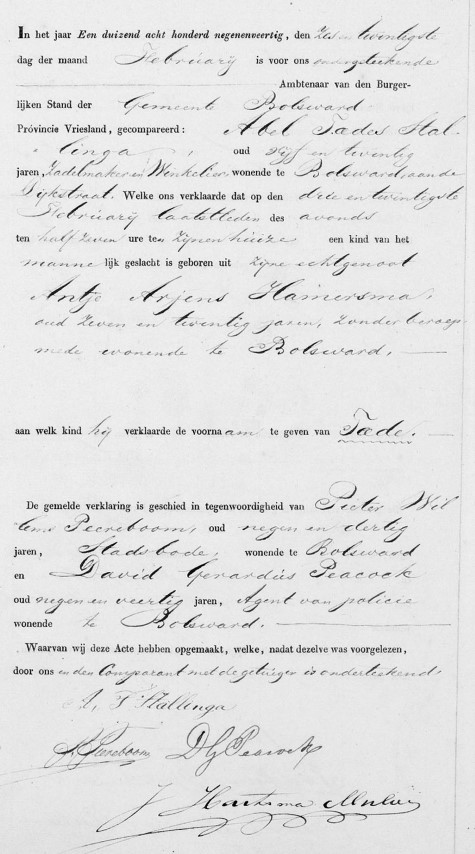 In het jaar Een duizend acht honderd negenenveertig, den Zes en twintigste
dag der maand Februarij is voor ons ondergeteekende
Ambtenaar van den Burger-
lijken Stand der Gemeente Bolsward
Provincie Vriesland, gecompareerd: Abel Tædes Stal-
linga, oud vijf en twintig
jaren, Zadelmaker en Winkelier, wonende te Bolsward aan de
Dijkstraat. Welke ons verklaarde dat op den drie en twintigste
Februarij laatstleden des avonds
ten half zeven ure ten zijnen huize een kind van het
mannelijk geslacht is geboren uit zijne echtgenoot
Antje Arjens Hamersma,
oud zeven en twintig jaren, zonder beroep
mede wonende te Bolsward.
aan welk kind hij verklaarde de voornaam te geven van Tæde.
De gemelde verklaring is geschied in tegenwoordigheid van Pieter Wil-
lems Peereboom, oud negen en dertig
jaren, Stadsbode, wonende te Bolsward
en David Gerardus Peacock
oud negen en veertig jaren, Agent van policie
wonende te Bolsward.
Waarvan wij deze Acte hebben opgemaakt, welke, nadat dezelve was voorgelezen,
door ons en den Comparant met de getuigen is onderteekend.
A. T. Stallinga
Peereboom DG Peacock
J Haitsma Mulier